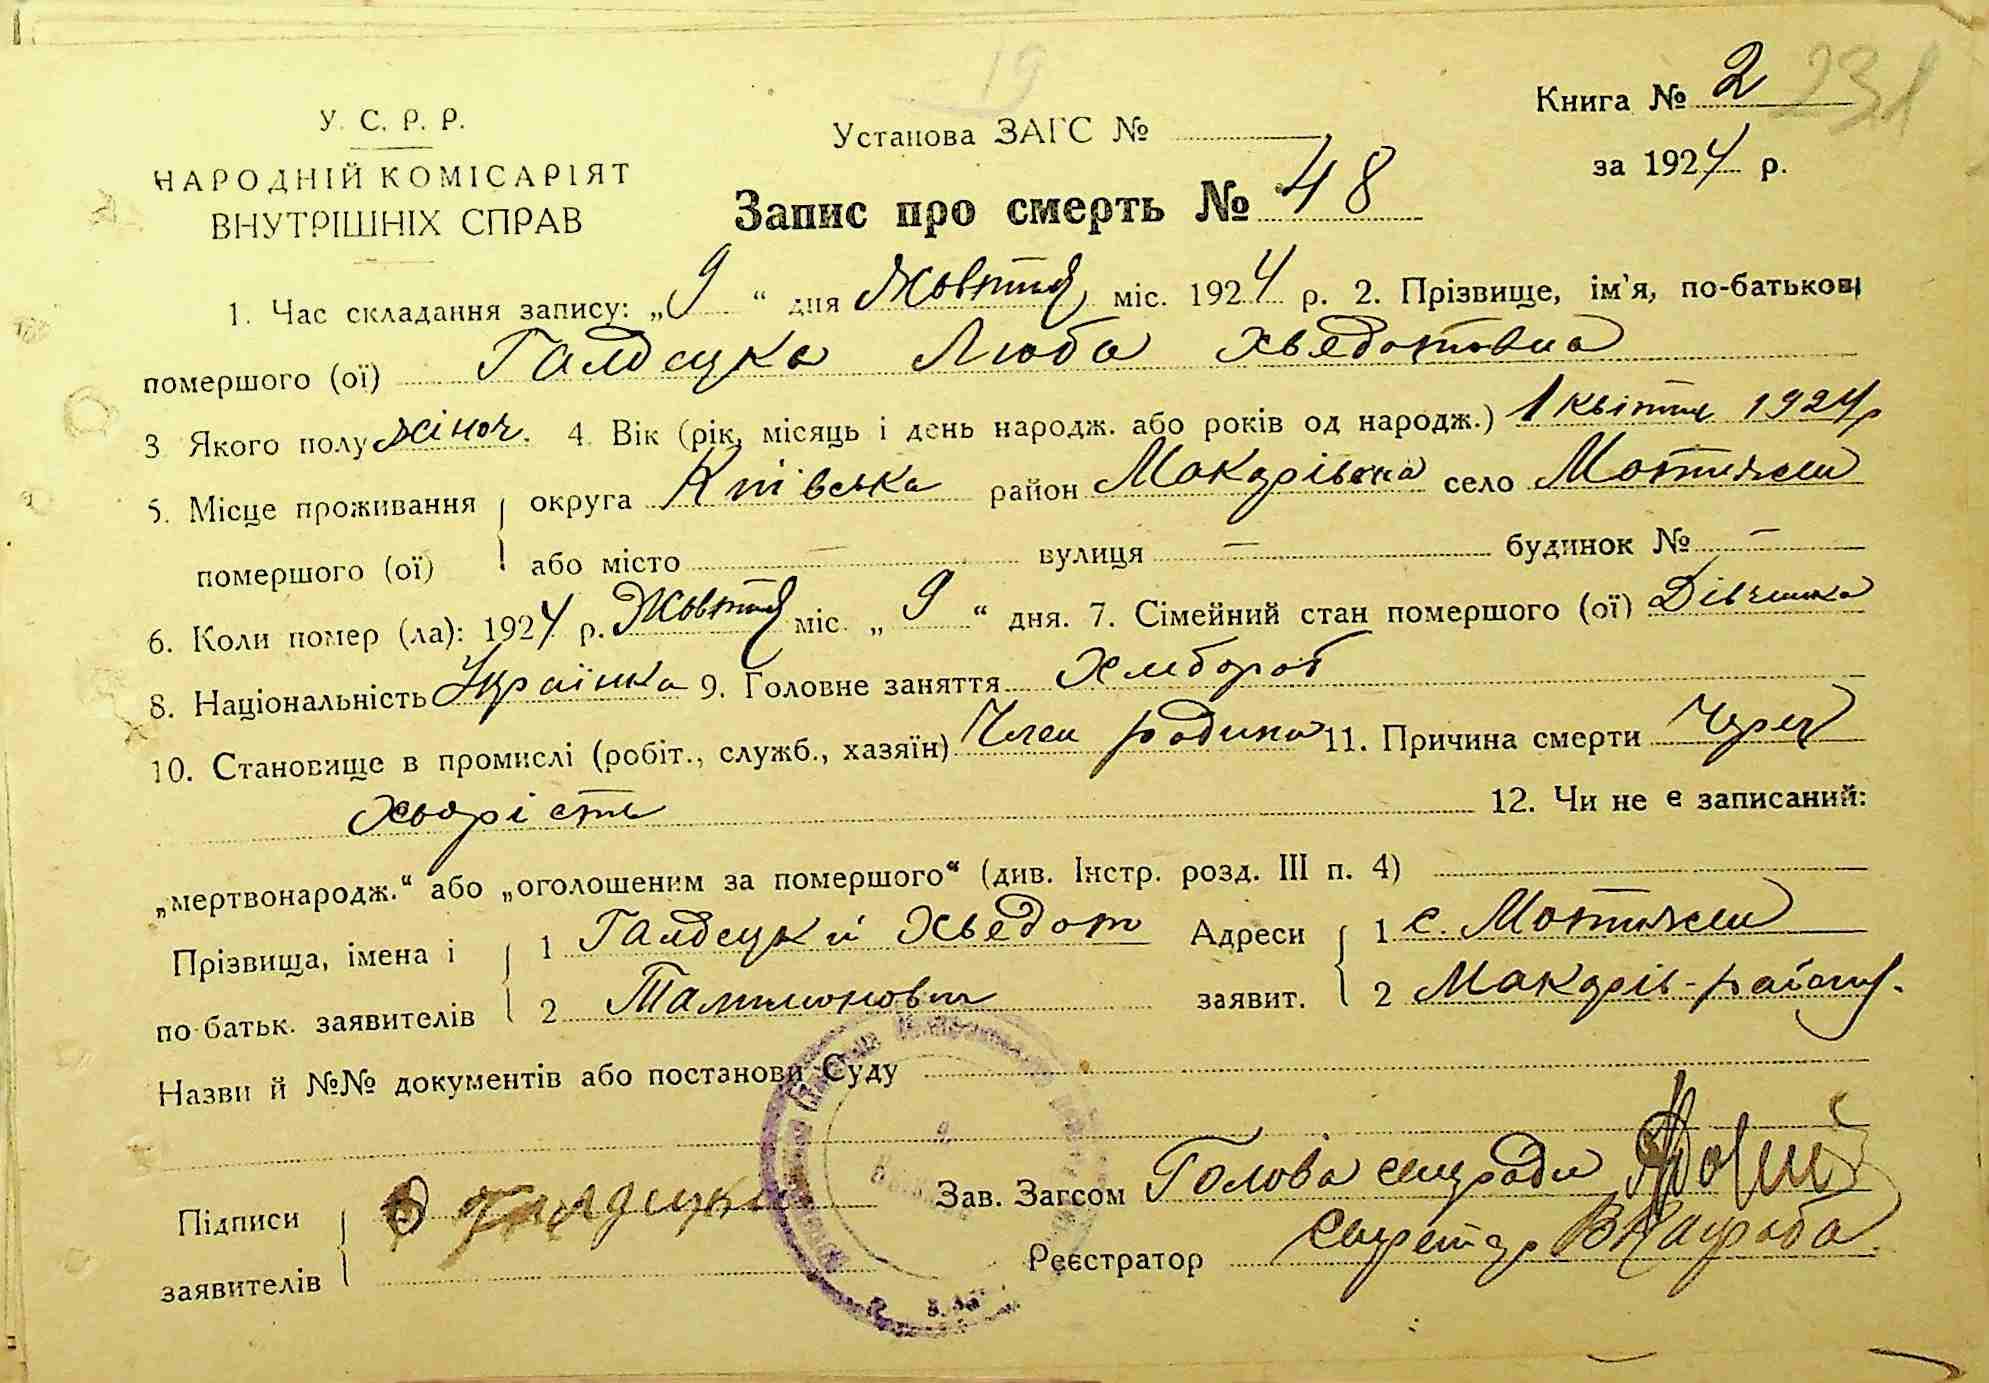 19
У. С. Р. Р.
НАРОДНІЙ КОМІСАРІЯТ
ВНУТРІШНІХ СПРАВ
Установа ЗАГС №
Запис про смерть № 48
Книга № 2 231
за 1924 р.
1. Час складання запису: „9“ дня Жовтня міс. 1924 р. 2. Прізвище, ім'я, по-батькові
помершого (ої) Галдецка Люба Хведотовна
3 Якого полу жіноч. 4. Вік (рік, місяць і день народж. або років од народж.) 1 квітня 1924 р
5. Місце проживання округа Київська район Макарівска село Мотижен
помершого (ої) або місто — вулиця — будинок № —
6. Коли помер (ла): 1924 р. Жовтня міс. „9“ дня. 7. Сімейний стан помершого (ої) Дівчинка
8. Національність Українка 9. Головне заняття Хлібороб
10. Становище в промислі (робіт., служб., хазяїн) Член родини 11. Причина смерти Через
хворість 12. Чи не є записаний:
„мертвонародж.“ або „оголошеним за помершого“ (див. Інстр. розд. III п. 4)
Прізвища, імена і 1 Галдецкий Хведот Адреси 1 с. Мотижен
по-батьк. заявителів 2 заявит. 2 Макарів-района.
Назви й №№ документів або постанови Суду
Підписи Галдецкий Зав. Загсом Голова сільради
заявителів Реєстратор Секретар